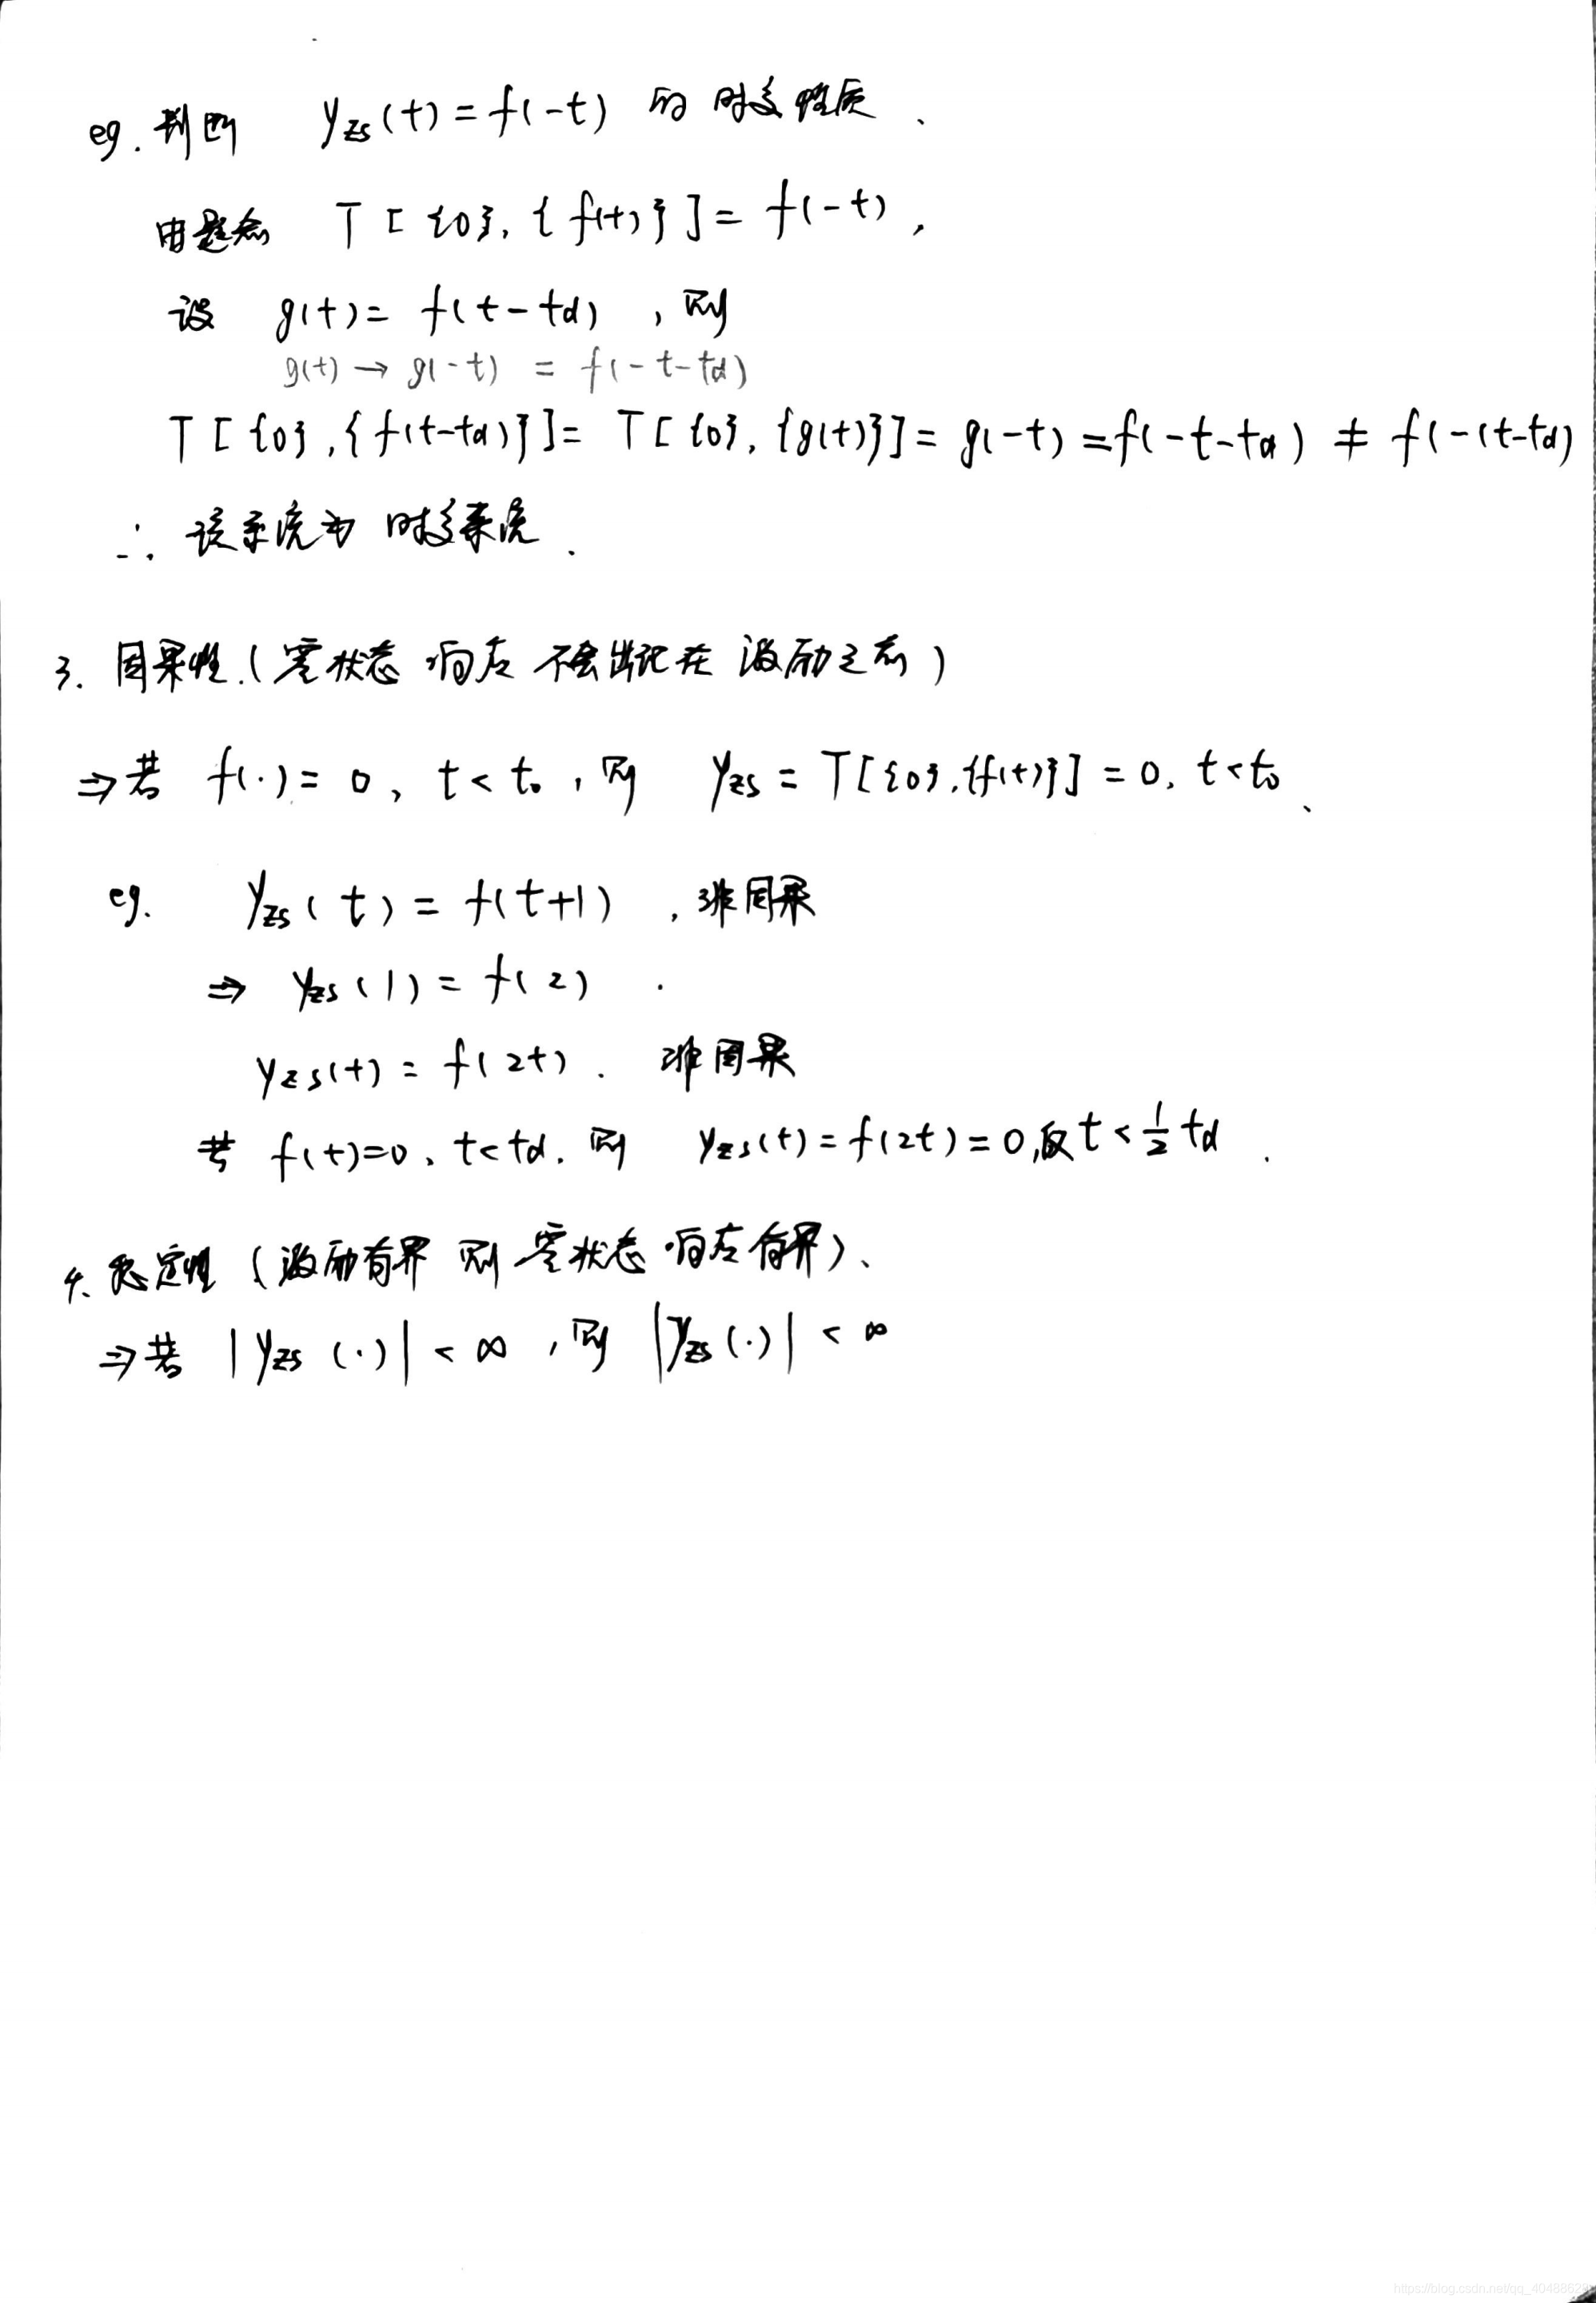 eg. 判断 yzs(t)=f(-t) 的时变性质.
由题知 T[{0},{f(t)}]=f(-t),
设 g(t)=f(t-td),则
g(t)→g(-t) = f(-t-td)
T[{0},{f(t-td)}]=T[{0},{g(t)}]=g(-t)=f(-t-td)≠f(-(t-td)
∴ 该系统为时变系统.
3. 因果性.(零状态响应不会出现在激励之前)
⇒若 f(·)=0, t<t0,则 yzs=T[{0},{f(t)}]=0, t<t0、
eg. yzs(t)=f(t+1),非因果
⇒ yzs(1)=f(2).
yzs(t)=f(2t). 非因果
若 f(t)=0、t<td, 则 yzs(t)=f(2t)=0, t<1/2 td.
4、稳定性(激励有界则零状态响应有界)、
⇒若 |yzs(·)|<∞,则 |yzs(·)|<∞